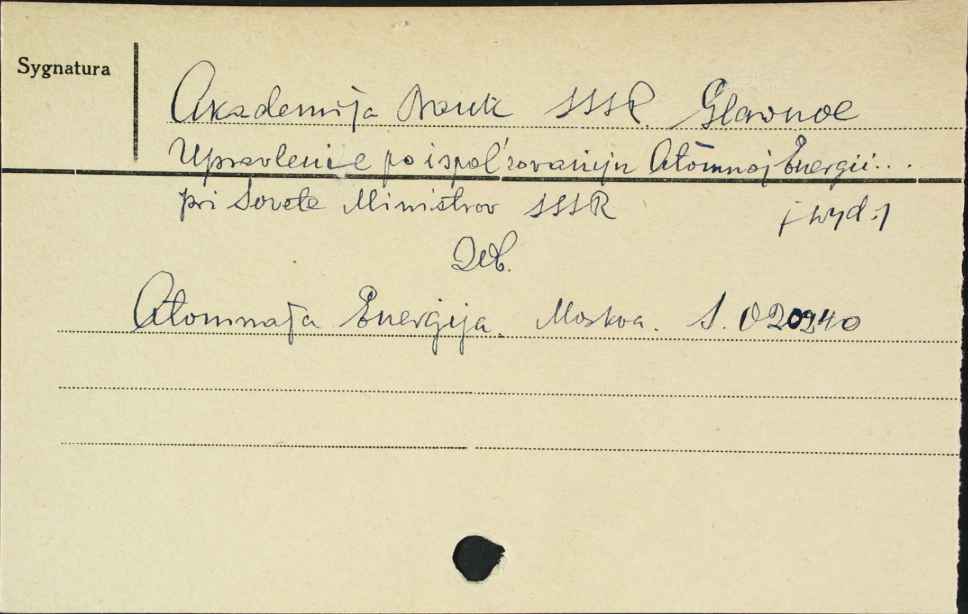 Sygnatura
Akademija Nauk SSSR. Glavnoe
Upravlenie po ispol'zovaniju Atomnoj Energii...
pri Sovete Ministrov SSSR
[wyd.]
Atomnaja Energija. Moskva. S. 020240